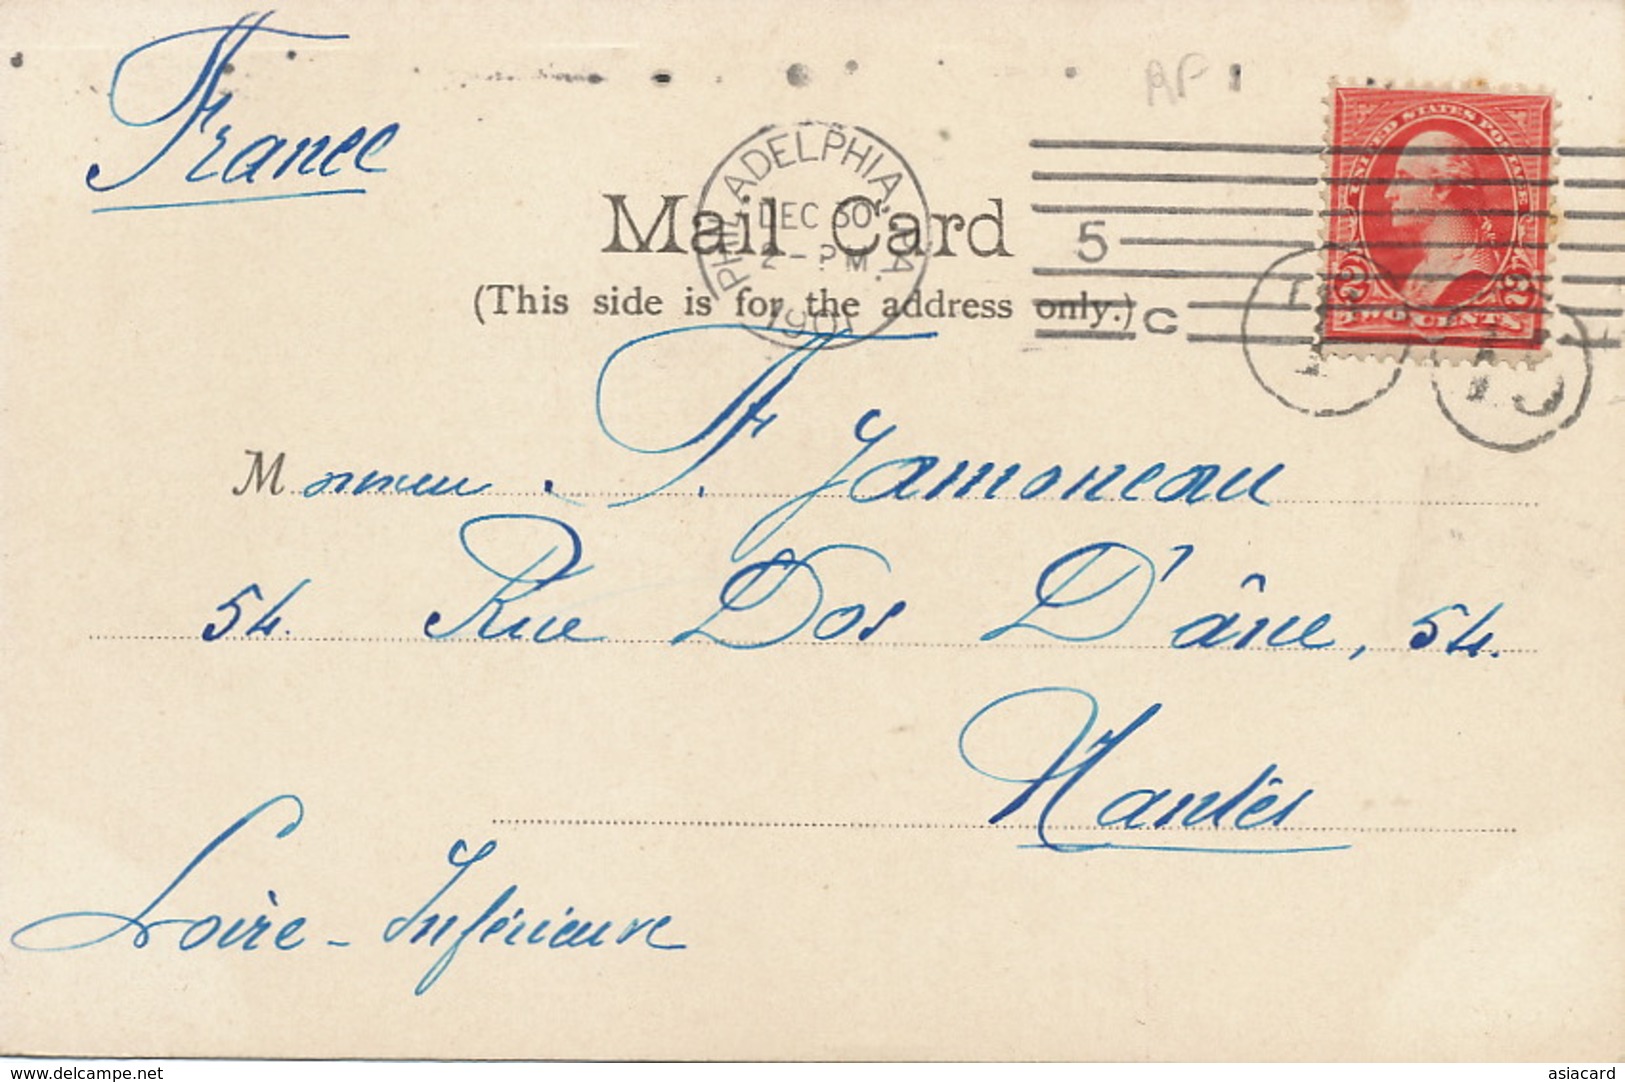 France
PHILADELPHIA. PA.
DEC 30
2 - PM
1901
5
C
UNITED STATES POSTAGE
2 2
TWO CENTS
Mail Card
(This side is for the address only.)
Monsieur F. Jamoneau
54. Rue Dos D'âne, 54.
Nantes
Loire-Inférieure
www.delcampe.net
asiacard